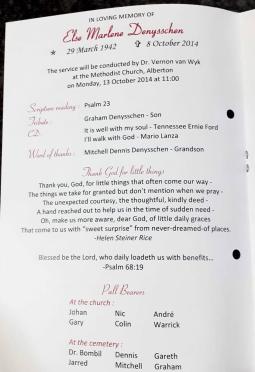 IN LOVING MEMORY OF
Else Marlene Denysschen
29 March 1942 8 October 2014
The service will be conducted by Dr. Vernon van Wyk
at the Methodist Church, Alberton
on Monday, 13 October 2014 at 11:00
Scripture reading : Psalm 23
Tribute : Graham Denysschen - Son
CD: It is well with my soul - Tennessee Ernie Ford
I'll walk with God - Mario Lanza
Word of thanks : Mitchell Dennis Denysschen - Grandson
Thank God for little things
Thank you, God, for little things that often come our way -
The things we take for granted but don't mention when we pray -
The unexpected courtesy, the thoughtful, kindly deed -
A hand reached out to help us in the time of sudden need -
Oh, make us more aware, dear God, of little daily graces
That come to us with "sweet surprise" from never-dreamed-of places.
-Helen Steiner Rice
Blessed be the Lord, who daily loadeth us with benefits...
-Psalm 68:19
Pall Bearers
At the church :
Johan Nic André
Gary Colin Warrick
At the cemetery :
Dr. Bombil Dennis Gareth
Jarred Mitchell Graham